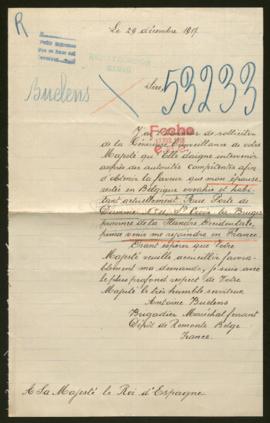 R
Le 29 décembre 1917
Buelens
Sire,
53233
J'ai l'honneur de solliciter
de la Bienveillance de votre
Majesté qu'Elle daigne intervenir
auprès des autorités compétentes afin
d'obtenir la faveur que mon épouse
restée en Belgique envahie et habi
tant actuellement Rue Porte de
province de la Flandre Occidentale,
puisse venir me rejoindre en France.
Osant espérer que Votre
Majesté veuille accueillir favora-
blement ma demande, je suis avec
le plus profond respect de Votre
Majesté le très humble serviteur
Antoine Buelens
Brigadier Maréchal ferrant
Dépôt de Remonte Belge
France.
A Sa Majesté le Roi d'Espagne